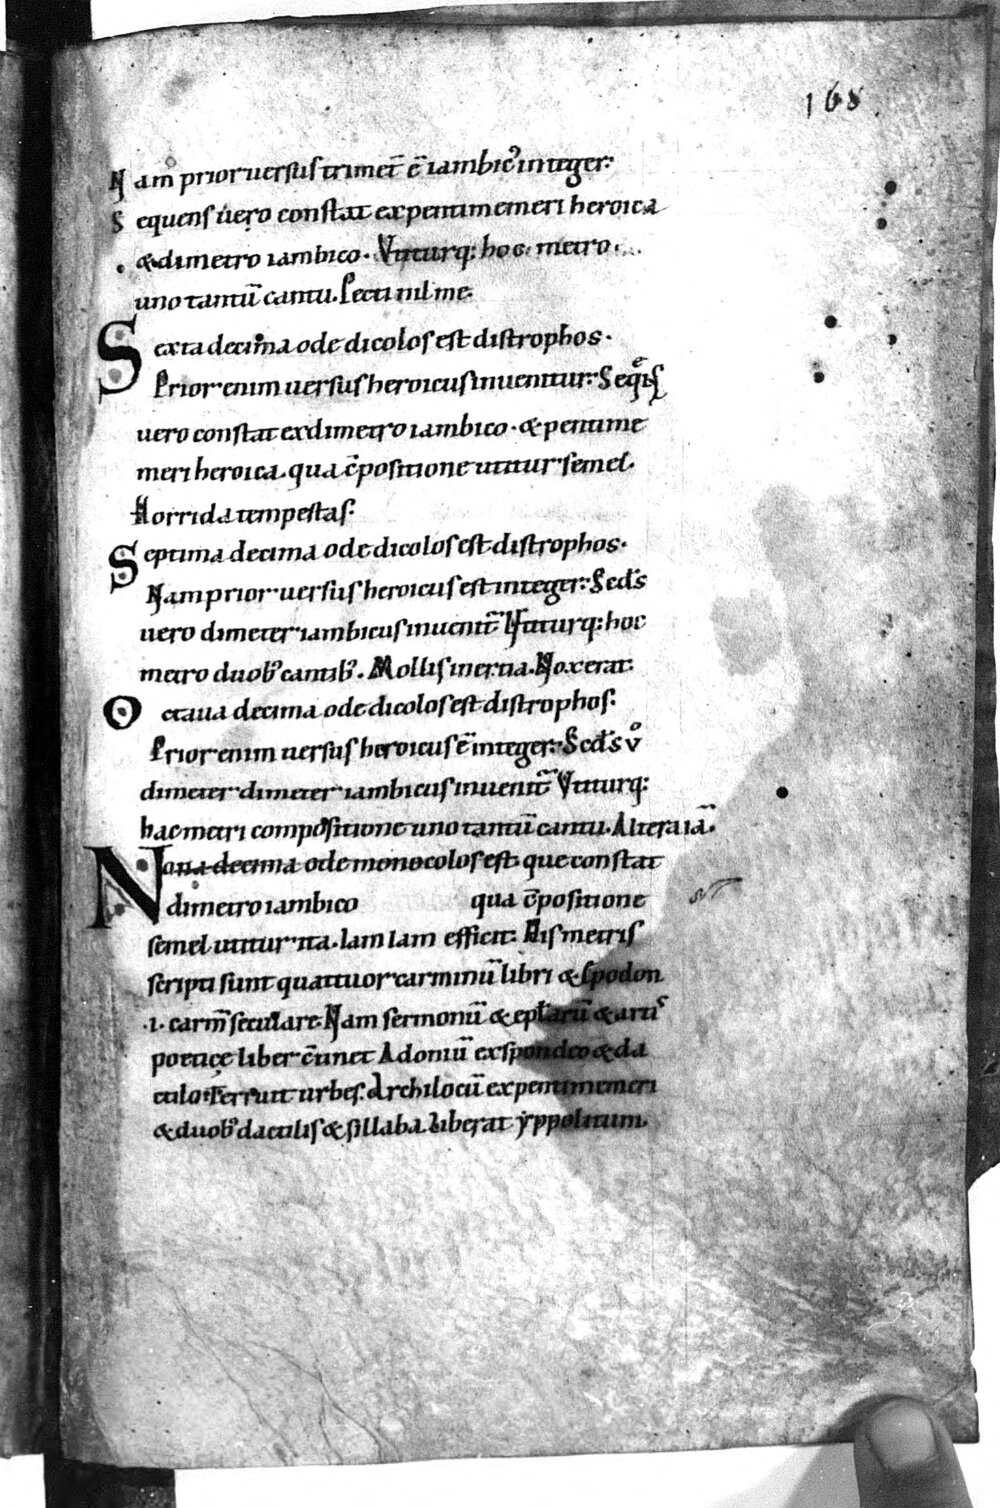 168
Nam prior uersus trimet̄ ē iambicꝰ integer:
Sequens uero constat ex pentimemeri heroica
& dimetro iambico. Vtiturq: hoc metro.
uno tantū cantu. Pecti nil me.
Sexta decima ode dicolos est distrophos.
Prior enim uersus heroicus inuenitur: Seq̄ns
uero constat ex dimetro iambico. & pentime
meri heroica. qua c̄positione utitur semel.
Horrida tempestas:
Septima decima ode dicolos est distrophos.
Nam prior uersus heroicus est integer: Scds
uero dimeter iambicus inuenit̄ Vtiturq: hoc
metro duobꝰ cantibꝰ. Mollis inertia. Nox erat:
Octaua decima ode dicolos est distrophos:
Prior enim uersus heroicus ē integer: Scds vᵒ
dimeter dimeter iambicus inuenit̄ Vtiturq:
hac metri compositione uno tantū cantu. Altera iā.
Nona decima ode monocolos est. que constat
dimetro iambico qua c̄positione
semel utitur ita. Iam Iam efficit: His metris
scripti sunt quattuor carminū libri & Epodon
.i. carm̄ seculare. Nam sermonū & eplarū & artis
poetiçe liber c̄tinet Adoniū ex spondeo & da
ctilo: Terruit urbes: Archilociū ex pentimemeri
& duobꝰ dactilis & sillaba. Liberat yppolitum.